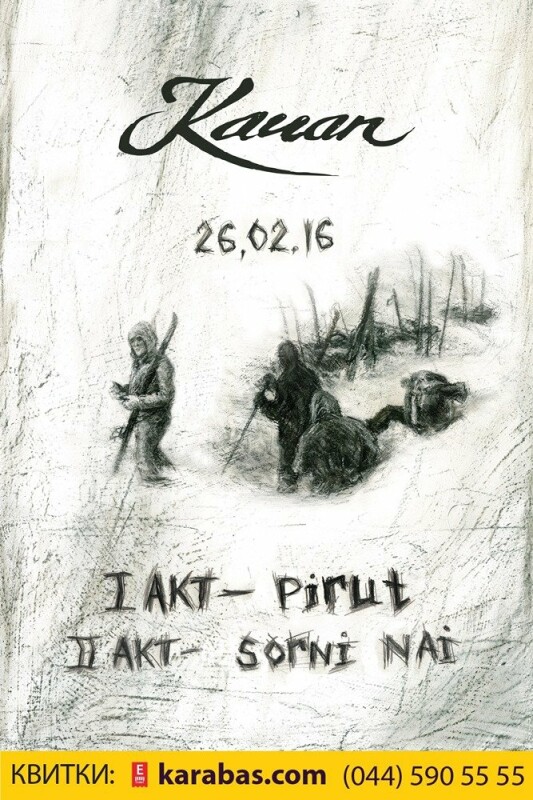 Kauan
26,02.16
I АКТ – Pirut
II АКТ - Sorni NAi
КВИТКИ: karabas.com (044) 590 55 55